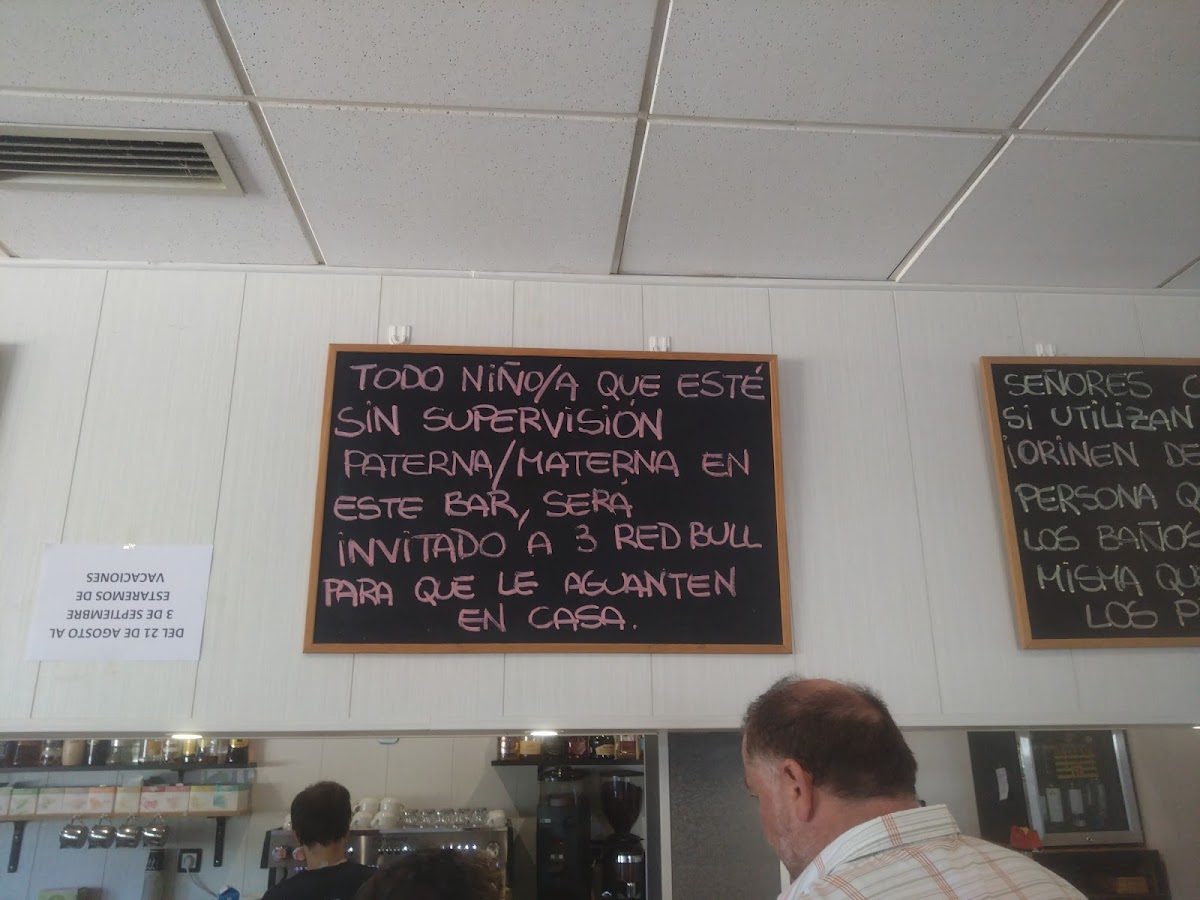 TODO NIÑO/A QUE ESTÉ
SIN SUPERVISIÓN
PATERNA/MATERNA EN
ESTE BAR, SERÁ
INVITADO A 3 RED BULL
PARA QUE LE AGUANTEN
EN CASA.
SEÑORES
SI UTILIZAN
¡ORINEN
PERSONA
LOS BAÑOS
MISMA QUE
LOS
DEL 21 DE AGOSTO AL
3 DE SEPTIEMBRE
ESTAREMOS DE
VACACIONES